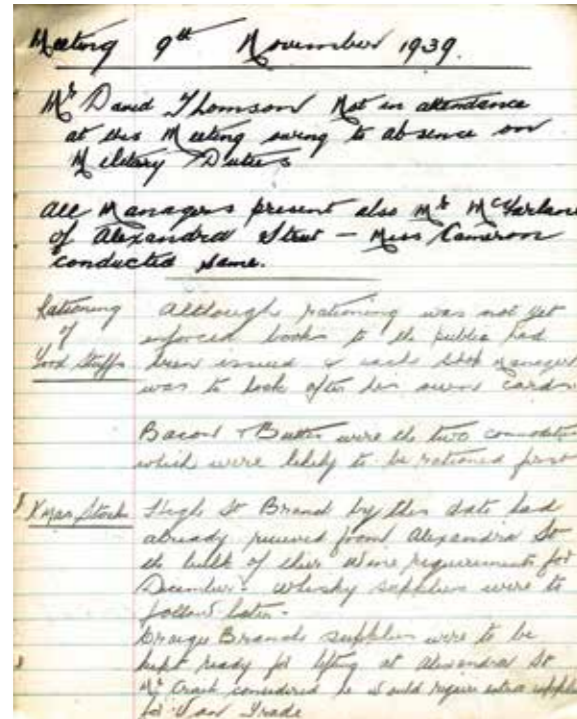 Meeting 9th November 1939.
Mr David Thomson Not in attendance
at this Meeting owing to absence on
Military Duties
All Managers present also Mr McFarlane
of Alexandra Street – Miss Cameron
conducted same.
Rationing Although rationing was not yet
of enforced books to the public had
Food Stuffs been issued & each shop Manager
was to look after his own cards
Bacon & Butter were the two commodities
which were likely to be rationed first
Xmas Stock High St Branch by this date had
already received from Alexandra St
the bulk of their Wine requirements for
December. Whisky supplies were to
follow later.
Craigie Branch supplies were to be
kept ready for lifting at Alexandra St
Mr considered he would require extra supplies
for Van Trade